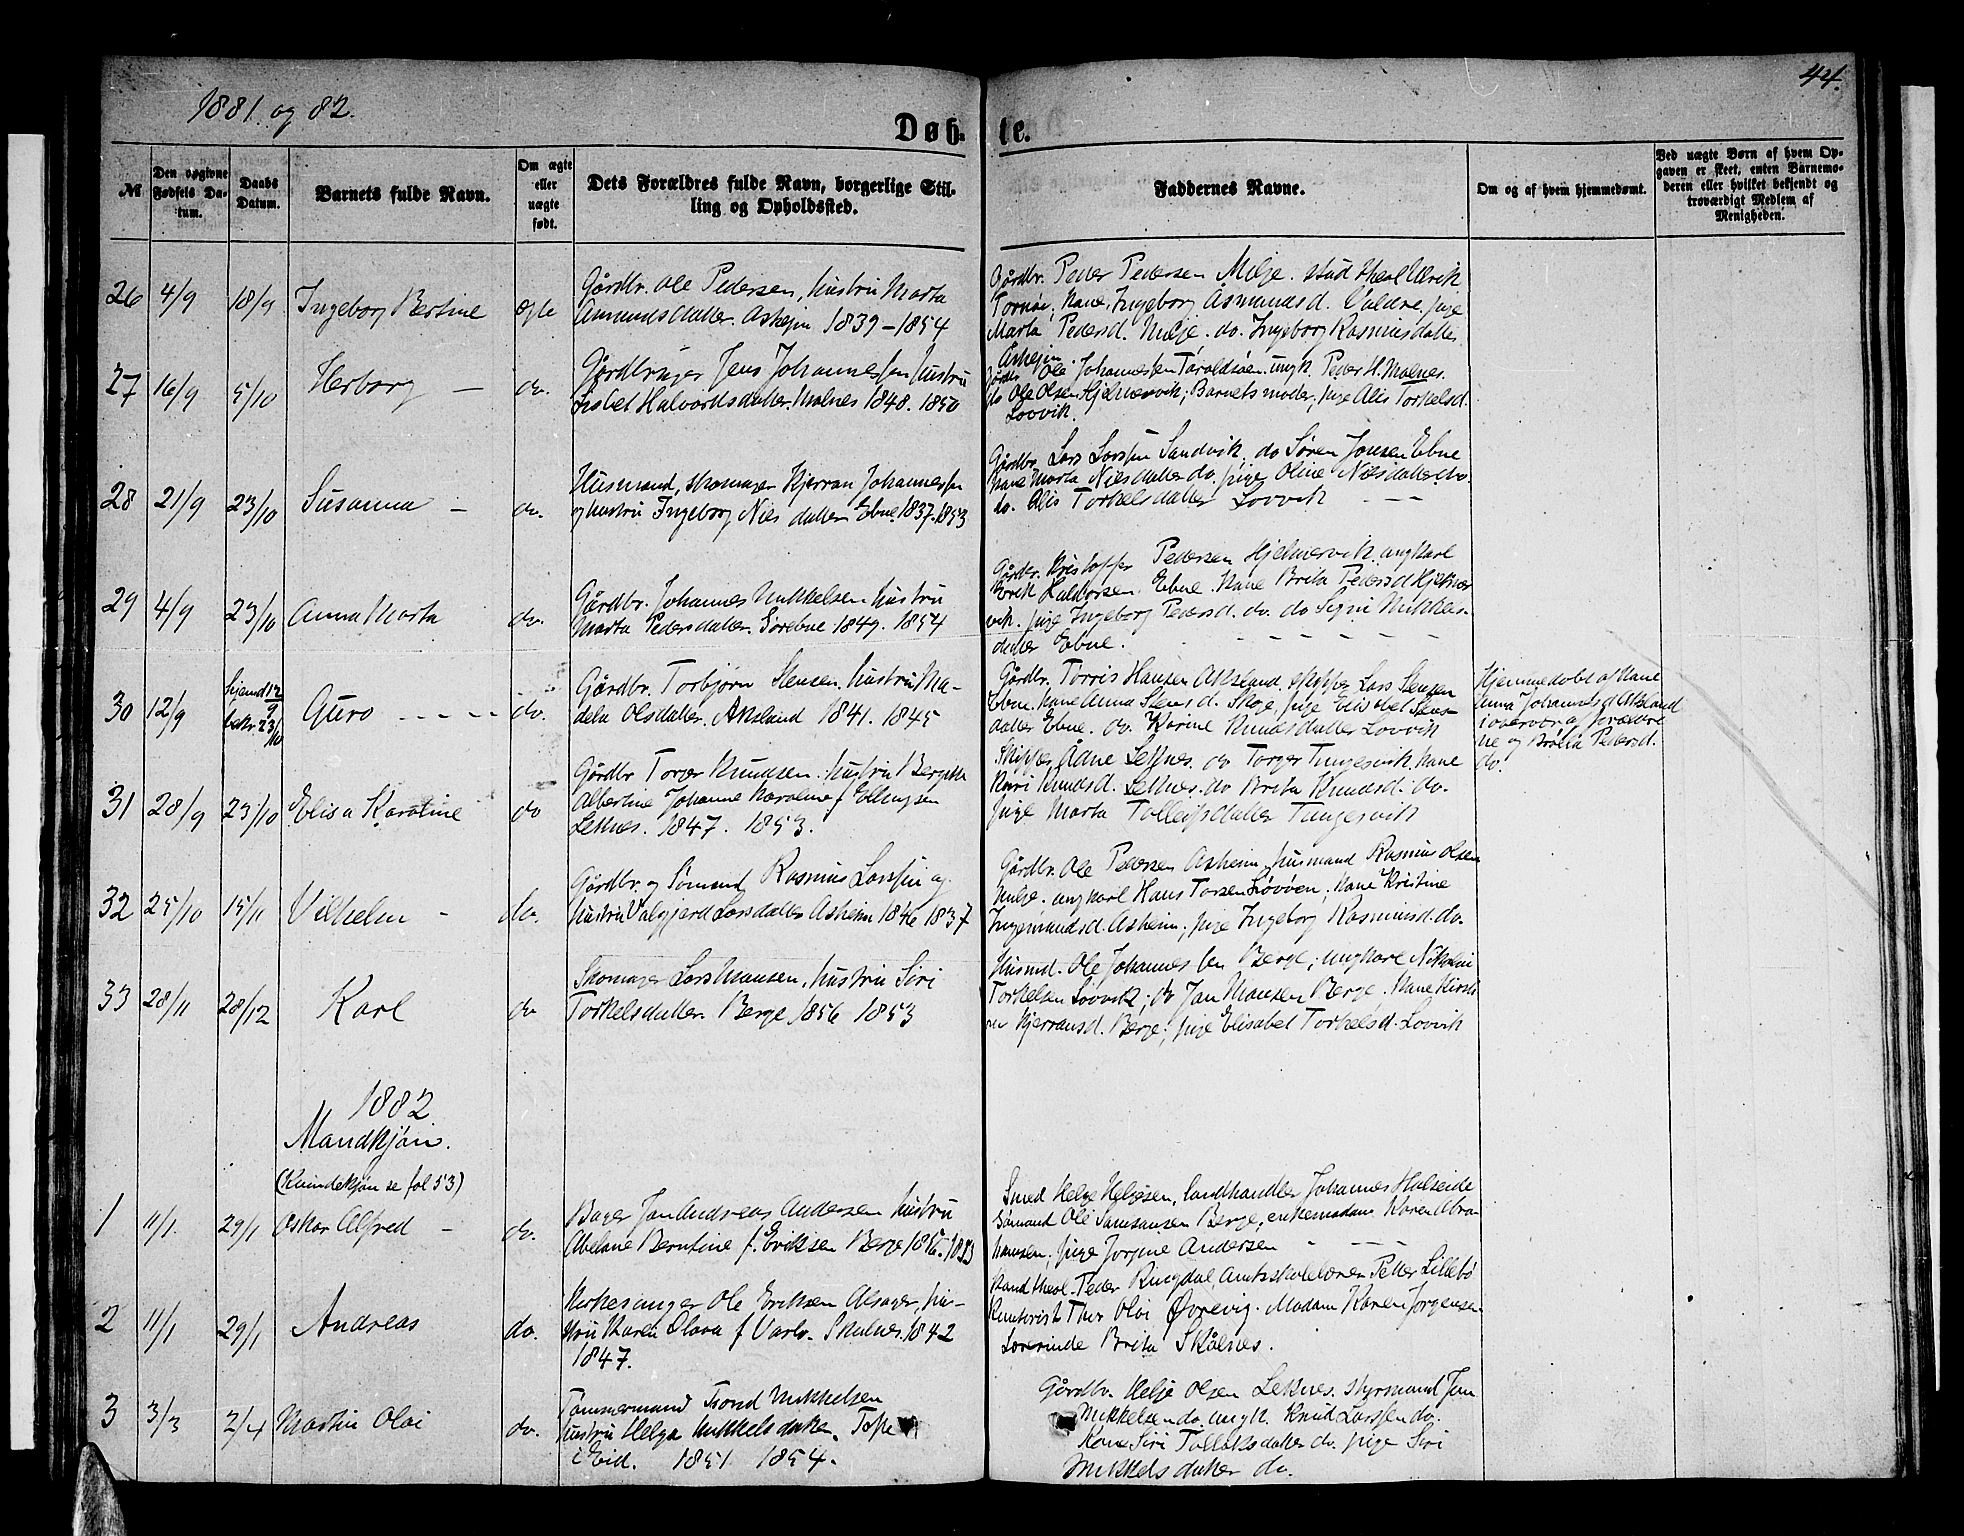 44.
1881 og 82.
Døb-
te.
№
Den opgivne Fødsels Da-
tum.
Daabs Datum.
Barnets fulde Navn.
Om ægte eller uægte født.
Dets Forældres fulde Navn, borgerlige Stil-
ling og Opholdssted.
Faddernes Navne.
Om og af hvem hjemmedømt.
Ved uægte Børn af hvem Op-
gaven er skeet, enten Barnemo-
deren eller hvilket bekjendt og
troværdigt Medlem af
Menigheden.
26 4/9 18/9 Ingeborg Bertine ægte
Gårdbr. Ole Pedersen, hustru Marta
Amundsdatter. Askejm 1839-1854
Gårdbr. Peder Pedersen Milje. stud theol Ulrik
Kone Ingeborg Asmundsd. Valdre. pige
Marta Pedersd. Milje. do. Ingeborg Rasmusdatter
Askejm.
27 16/9 5/10 Herborg — do.
Gårdbruger Jens Johannessen hustru
Lisbet Halvordsdatter. Malnes 1848. 1850
Ole Johannessen ungk. Peder H. Malnes.
do Ole Olsen Hjelmervik; Barnets moder; pige Alis Torkelsd.
Lovvik.
28 21/9 23/10 Susanna — do.
Husmand, skomager Kjerran Johannessen
og hustru Ingeborg Nilsdatter Ebne. 1837. 1853
Gårdbr. Lars Larssen Sandvik. do Søren Jensen Ebne
Kone Marta Nilsdatter do. pige Oline Nilsdatter do.
do. Alis Torkelsdatter Lovvik — —
29 4/9 23/10 Anna Marta do.
Gårdbr. Johannes Mikkelsen hustru
Marta Pedersdatter. Sørebne 1849. 1854
Gårdbr. Kristoffer Pedersen Hjelmervik. ungkarl
Erik Haldorsen Ebne. Kone Brita Pedersd Hjelmer
vik. pige Ingeborg Pedersd. do. do Signi Mikkels-
datter Ebne. — — — — — —
30 12/9 hjemd 12/9
bekr. 23/10 Guro - - - - do.
Gårdbr. Torbjørn Stensen. hustru Ma-
dela Olsdatter. Aksland 1841. 1845
Gårdbr. Torris Hansen Aksland. skipper Lars Stensen
Ebne. Kone Anna Stensd. pige Elisabet Stens-
datter Ebne. do. Karine Knudsdatter Lovvik
Hjemmedøbt af Kone
Anna Johannesd Aksland
i overvær af forældre
ne og Pedersd.
do.
31 28/9 23/10 Elisa Karoline do
Gårdbr Torger Knudsen. hustru
Albertine Johanne Karoline f Ellingsen
Leknes. 1847. 1853.
Skipper Ådne Leknes. do Torger Tungesvik. Kone
Knudsd. Leknes. do Brita Knudsd. do.
pige Marta Tolleifsdatter Tungesvik
32 25/10 15/11 Vilhelm - do.
Gårdbr. og Sømand Rasmus Larssen og
hustru Valgjerd Larsdatter Asheim 1846 1837
Gårdbr. Ole Pedersen Asheim, husmand Rasmus Olsen
Milje. ungkarl Hans Kone Kristine
Ingemundsd. Asheim; pige Ingeborg Rasmusd. do.
33 28/11 28/12 Karl do
Skomager Lars Monsen, hustru Siri
Torkelsdatter. Berge 1856 1853
Husmd. Ole Johannessen Berge; ungkarl Nikolai
Torkelsen Løvvik; do Jan Monsen Berge. Kone Kirsti
ne Kjerransd. Berge; pige Elisabet Torkelsd. Lovvik
1882
Mandkjøn.
(Kvindekjøn se fol 53)
1 11/1. 29/1 Oskar Alfred - do.
Bager Jan Andreas Andersen hustru
Abelone Berntine f. Eriksen Berge 1856. 1853
Smed Helje Heljesen, landhandler Johannes Halseide
Sømand Ole Samsonsen Berge, enkemadam Karen Abra
hamsen; pige Jorgine Andersen - — — —
2 11/1 29/1 Andreas do.
Kirkesanger Ole Eriksen Alsager, hu-
stru Karen Olava f Skålnes. 1842
1847.
Kand theol. Peder Ringdal, Amtsskolelærer Petter Lillebø
Kontorist Thor Olai Øvrevig. Madam Karen Jorgensen
Lærerinde Brita Skålnes.
3 3/3 2/4 Martin Olai do.
Tømmermand Trond Mikkelsen
hustru Helga Mikkelsdatter.
i Eid. 1851 1854.
Gårdbr. Helje Olsen Leknes. styrmand Jan
Mikkelsen do. ungk. Knud Larssen do.
Kone Siri Tollaksdatter do. pige Siri
Mikkelsdatter do.